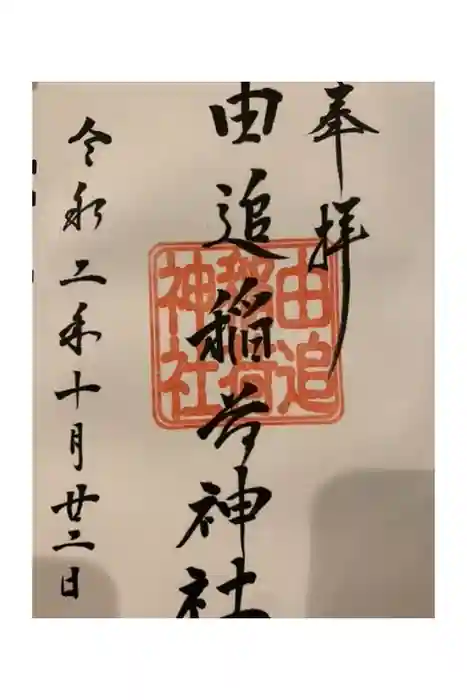 奉拝
由追稲荷神社
由追
稲荷
神社
令和二年十月廿二日